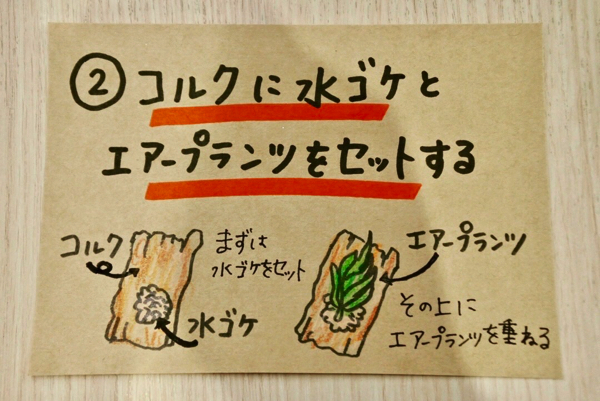 ②コルクに水ゴケと
エアープランツをセットする
コルク
まずは
水ゴケをセット
水ゴケ
エアープランツ
その上に
エアープランツを重ねる